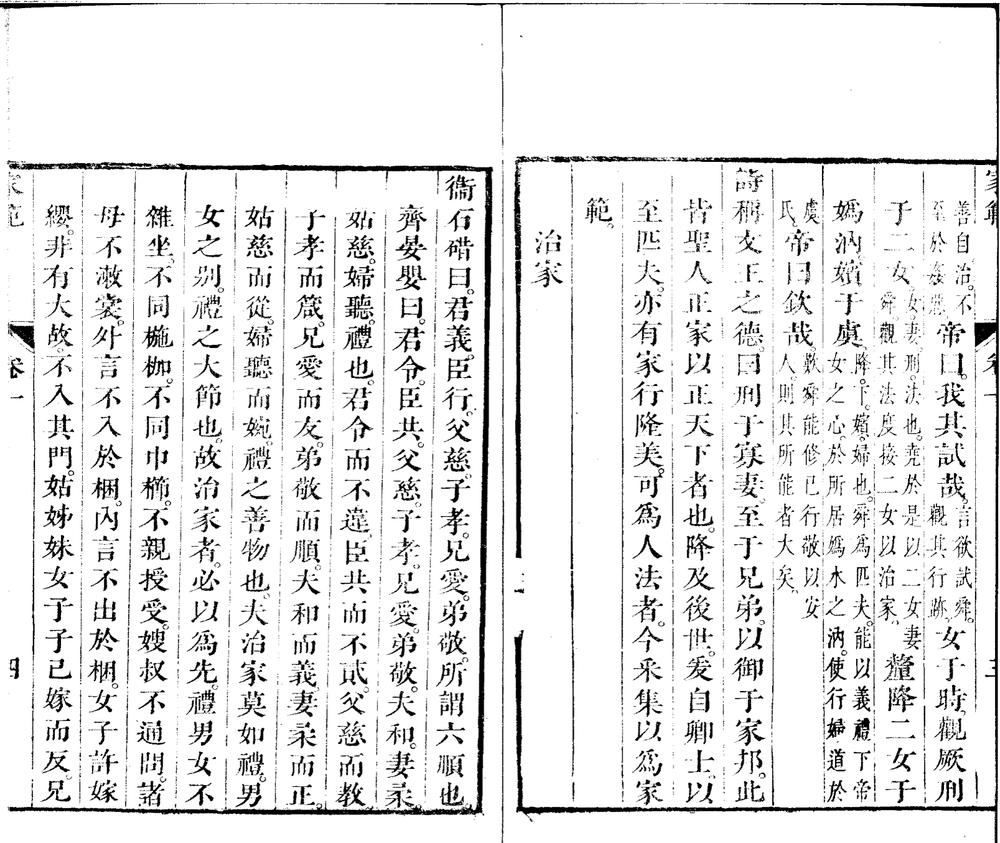 家範
善自治。不
至於姦惡。
帝曰。我其試哉。
言欲試舜。
觀其行跡。
女于時。觀厥刑
于二女。
女妻。刑。法也。堯於是以二女妻
舜觀其法度接二女以治家。
釐降二女于
嬀汭。嬪于虞。
降。下。嬪。婦也。舜爲匹夫。能以義禮下帝
女之心。於所居嬀水之汭。使行婦道於
虞
氏。
帝曰。欽哉。
歎舜能修己行敬以安
人。則其所能者大矣。
詩稱文王之德曰。刑于寡妻。至于兄弟。以御于家邦。此
皆聖人正家以正天下者也。降及後世。爰自卿士。以
至匹夫。亦有家行隆美。可爲人法者。今采集以爲家
範。
治家
衞石碏曰。君義。臣行。父慈。子孝。兄愛。弟敬。所謂六順也
齊晏嬰曰。君令。臣共。父慈。子孝。兄愛。弟敬。夫和。妻柔
姑慈。婦聽。禮也。君令而不違。臣共而不貳。父慈而教
子孝而箴。兄愛而友。弟敬而順。夫和而義。妻柔而正。
姑慈而從。婦聽而婉。禮之善物也。夫治家莫如禮。男
女之别。禮之大節也。故治家者。必以爲先。禮男女不
雜坐。不同椸枷。不同巾櫛。不親授受。嫂叔不通問。諸
母不漱裳。外言不入於梱。内言不出於梱。女子許嫁
纓。非有大故。不入其門。姑姊妹女子子已嫁而反。兄
家範
卷一
四